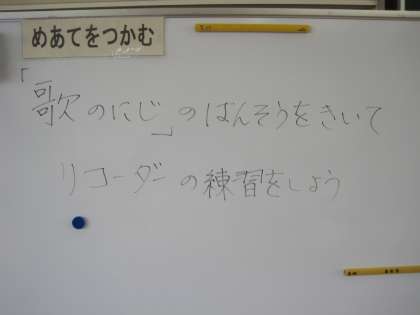 めあてをつかむ
「歌のにじ」のばんそうをきいて
リコーダーの練習をしよう